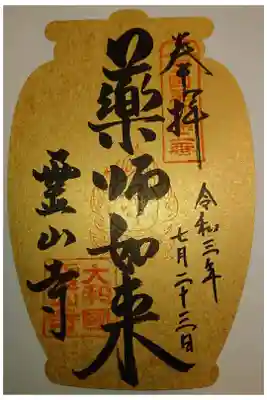 奉拝
令和三年
七月二十三日
藥師如来
霊山寺
大和國